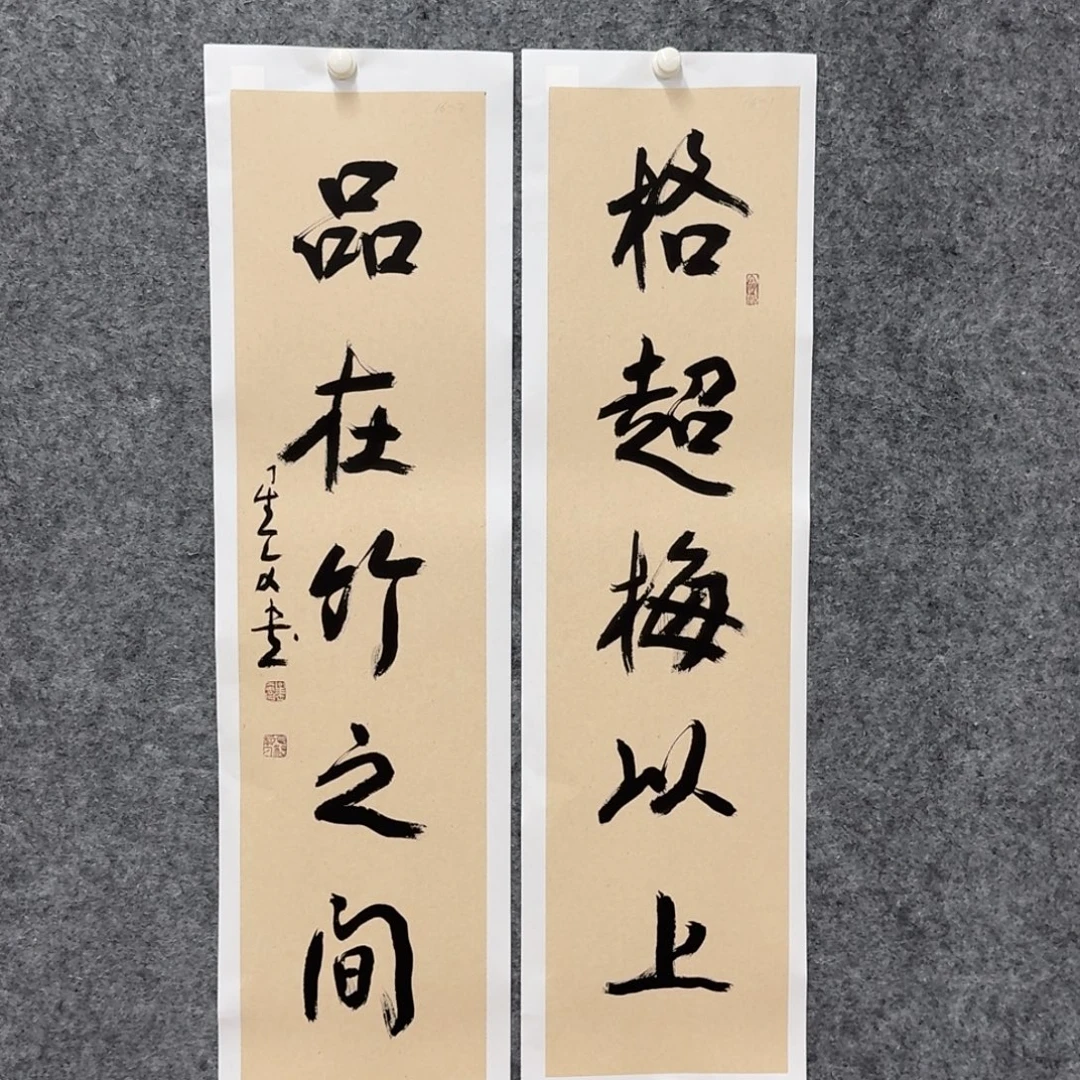 格超梅以上
品在竹之间